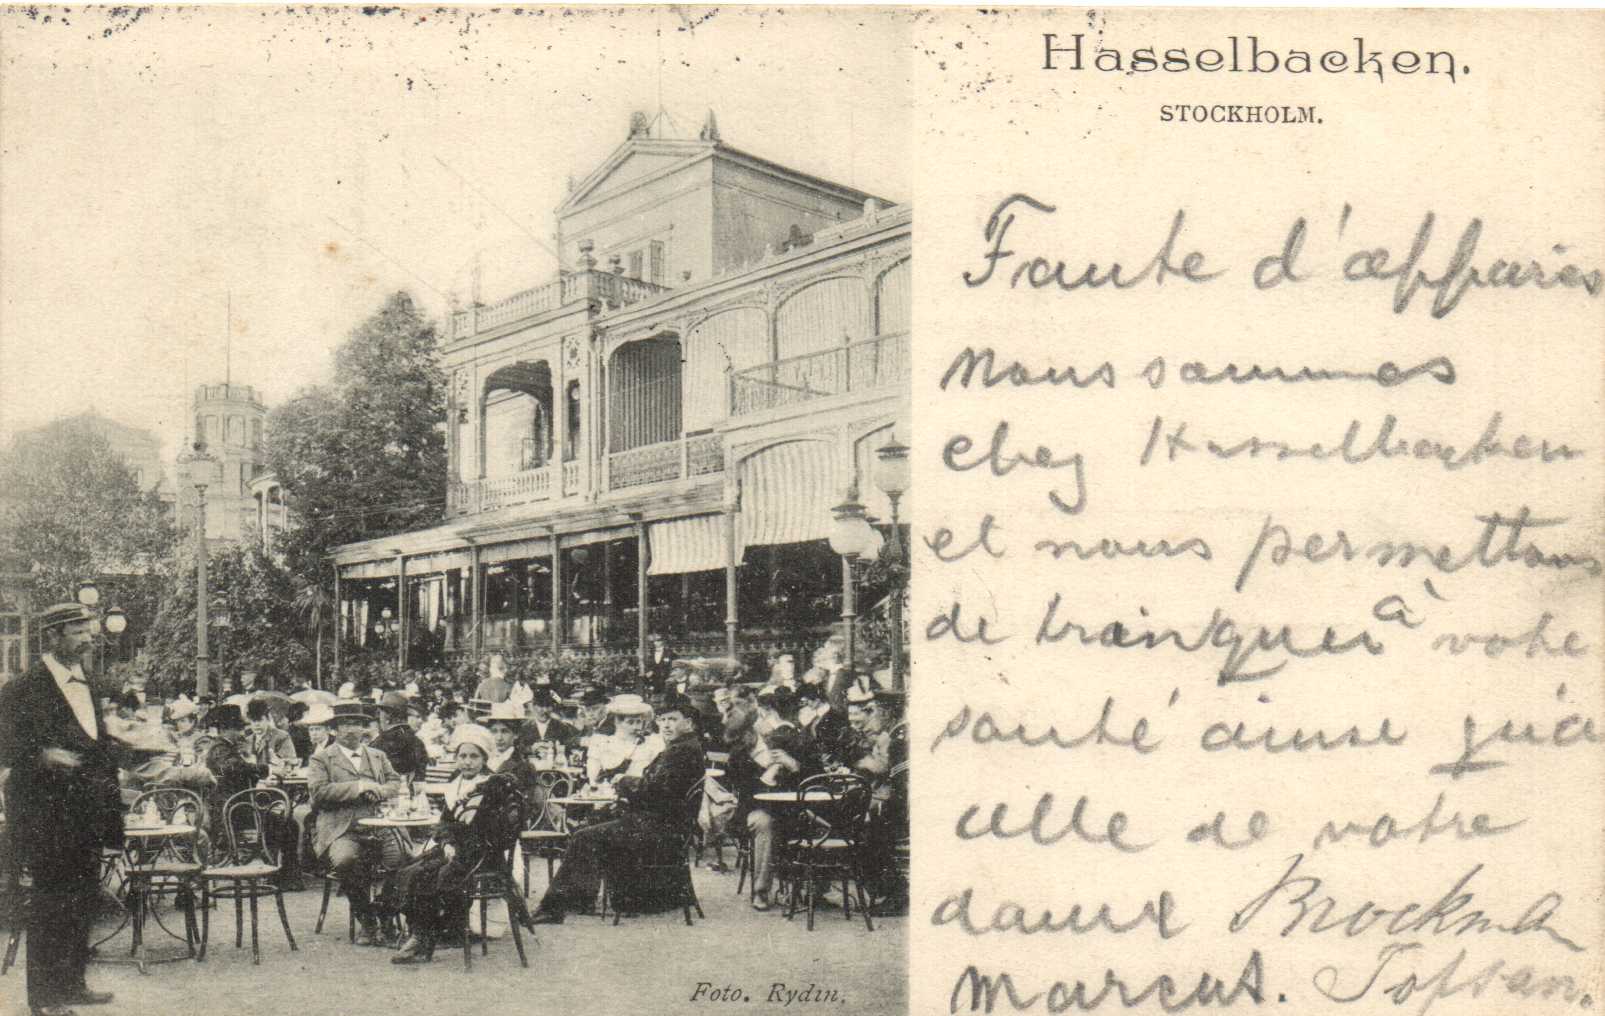 Hasselbacken.
STOCKHOLM.
Faute d'affaires
nous sommes
chez Hasselbacken
et nous permettons
de trainquer à votre
santé ainse qu'a
celle de votre
dame Brockman
Marcus.
Foto. Rydin.